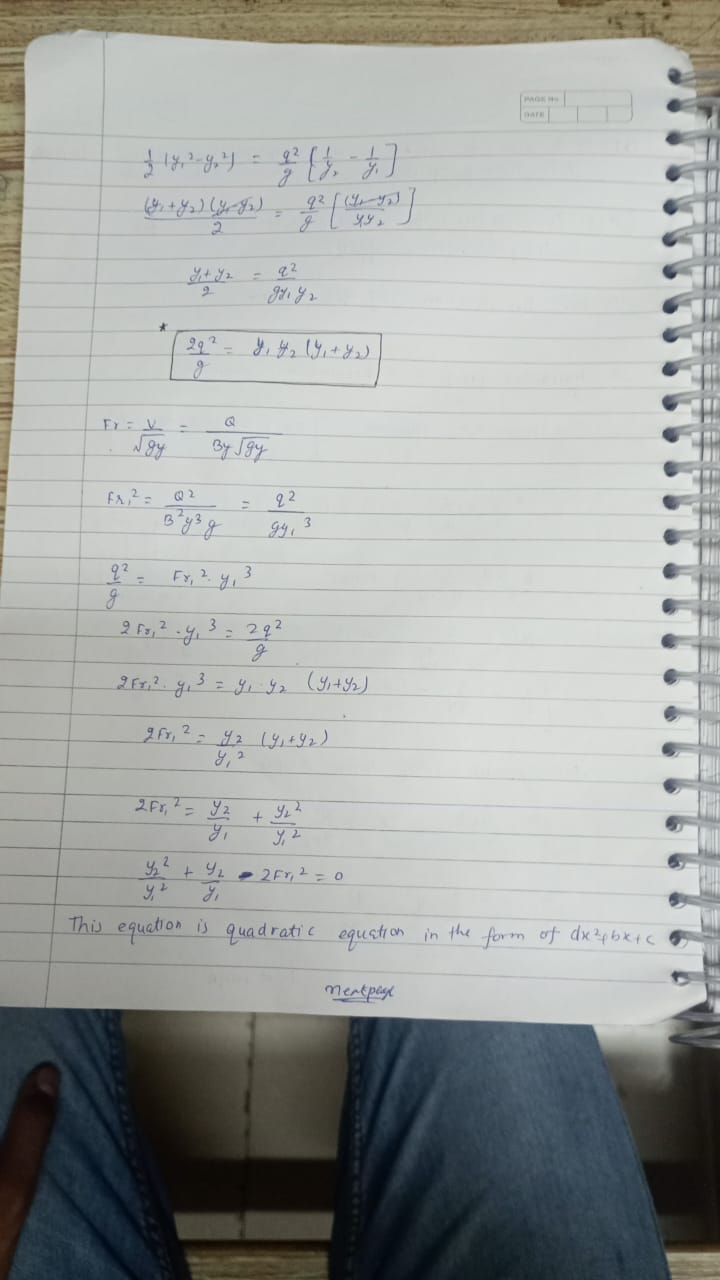 PAGE No.
DATE
1/2 (y₁² - y₂²) = q²/g [1/y₂ - 1/y₁]
(y₁+y₂)(y₁-y₂)/2 = q²/g [(y₁-y₂)/y₁y₂]
y₁+y₂/2 = q²/gy₁y₂
* 2q²/g = y₁ y₂ (y₁+y₂)
Fr = V/√gy = Q/By√gy
Fr₁² = Q²/B²y³g = q²/gy₁³
q²/g = Fr₁² · y₁³
2Fr₁² · y₁³ = 2q²/g
2Fr₁² · y₁³ = y₁ · y₂ (y₁+y₂)
2Fr₁² = y₂/y₁² (y₁+y₂)
2Fr₁² = y₂/y₁ + y₂²/y₁²
y₂²/y₁² + y₂/y₁ - 2Fr₁² = 0
This equation is quadratic equation in the form of dx²+bx+c
Next page